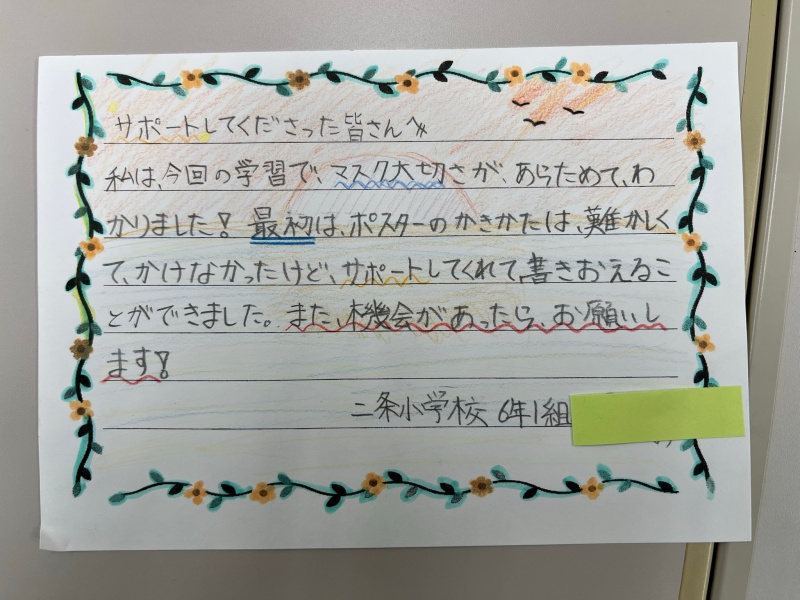 サポートしてくださった皆さんへ
私は、今回の学習で、マスク大切さが、あらためて、わ
かりました！最初は、ポスターのかきかたは、難かしく
て、かけなかったけど、サポートしてくれて、書きおえるこ
とができました。また、機会があったら、お願いし
ます！
二条小学校 6年1組